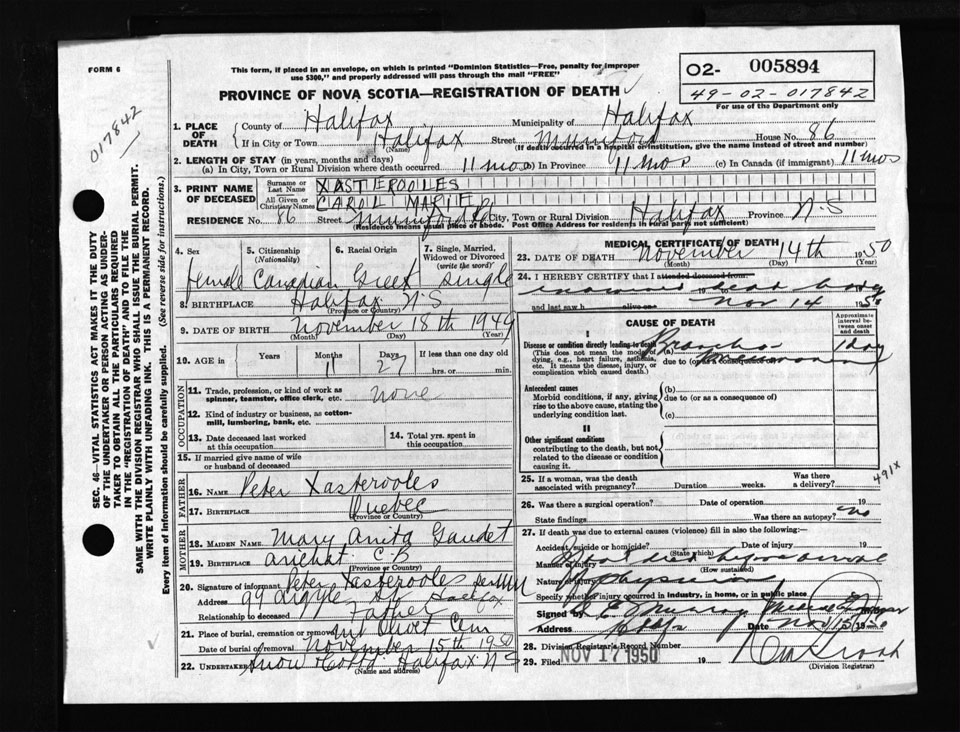 FORM 6
This form, if placed in an envelope, on which is printed "Dominion Statistics—Free, penalty for improper
use $300," and properly addressed will pass through the mail "FREE"
PROVINCE OF NOVA SCOTIA—REGISTRATION OF DEATH
02- 005894
49-02-017842
For use of the Department only
017842
SEC. 46—VITAL STATISTICS ACT MAKES IT THE DUTY
OF THE UNDERTAKER OR PERSON ACTING AS UNDER-
TAKER TO OBTAIN ALL THE PARTICULARS REQUIRED
IN THE "REGISTRATION OF DEATH" AND TO FILE THE
SAME WITH THE DIVISION REGISTRAR WHO SHALL ISSUE THE BURIAL PERMIT.
WRITE PLAINLY WITH UNFADING INK. THIS IS A PERMANENT RECORD.
Every item of information should be carefully supplied. (See reverse side for instructions.)
1. PLACE OF DEATH
County of Halifax Municipality of Halifax
If in City or Town Halifax Street Mumford House No. 86
(Name) (If death occurred in a hospital or institution, give the name instead of street and number)
2. LENGTH OF STAY (in years, months and days)
(a) In City, Town or Rural Division where death occurred 11 mos (b) In Province 11 mos (c) In Canada (if immigrant) 11 mos
3. PRINT NAME OF DECEASED
Surname or Last Name XASTEROOLES
All Given or Christian Names CAROL MARIE
RESIDENCE No. 86 Street Mumford Rd City, Town or Rural Division Halifax Province N-S
(Residence means usual place of abode. Post Office Address for residents in rural parts not sufficient)
4. Sex 5. Citizenship (Nationality) 6. Racial Origin 7. Single, Married, Widowed or Divorced (write the word)
female Canadian Greek single
8. BIRTHPLACE Halifax N-S
(Province or Country)
9. DATE OF BIRTH November 18th 1949
(Month) (Day) (Year)
10. AGE in Years Months Days If less than one day old
11 27 hrs. or min.
OCCUPATION
11. Trade, profession, or kind of work as spinner, teamster, office clerk, etc. none
12. Kind of industry or business, as cotton-mill, lumbering, bank, etc.
13. Date deceased last worked at this occupation
14. Total yrs. spent in this occupation
15. If married give name of wife or husband of deceased
FATHER
16. NAME Peter Xasterooles
17. BIRTHPLACE Quebec
(Province or Country)
MOTHER
18. MAIDEN NAME Mary Anita Gaudet
19. BIRTHPLACE Arichat C-B
(Province or Country)
20. Signature of informant Peter Xasterooles per
Address 99 Argyle St. Halifax
Relationship to deceased Father
21. Place of burial, cremation or removal Mt Olivet Cem
Date of burial or removal November 15th 1950
22. UNDERTAKER Snow Halifax N-S
(Name and address)
MEDICAL CERTIFICATE OF DEATH
23. DATE OF DEATH November 14th 1950
(Month) (Day) (Year)
24. I HEREBY CERTIFY that I attended deceased from:
examined dead body
and last saw h alive on Nov 14 1950
CAUSE OF DEATH
Approximate interval between onset and death
I
Disease or condition directly leading to death
(This does not mean the mode of dying, e.g., heart failure, asthenia, etc. It means the disease, injury, or complication which caused death.)
(a) Broncho-pneumonia 1 day
due to (or as a consequence of)
Antecedent causes
Morbid conditions, if any, giving rise to the above cause, stating the underlying condition last.
(b)
due to (or as consequence of)
(c)
II
Other significant conditions
contributing to the death, but not related to the disease or condition causing it.
25. If a woman, was the death associated with pregnancy? Duration weeks. Was there a delivery?
491X
26. Was there a surgical operation? Date of operation 19
State findings Was there an autopsy? no
27. If death was due to external causes (violence) fill in also the following:
Accident, suicide or homicide? Date of injury 19
(State which)
Manner of injury died before arrival
(How sustained)
Nature of injury physician
Specify whether injury occurred in Industry, in home, or in public place
Signed by Murray Medical Examiner
Address Date Nov 15 1950
28. Division Registrar's Record Number
29. Filed NOV 17 1950 19
(Division Registrar)